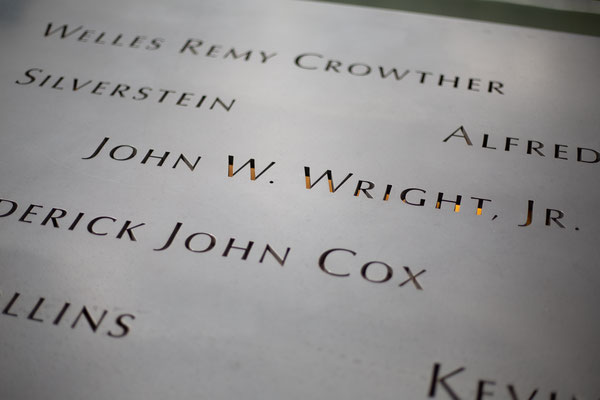 WELLES REMY CROWTHER
SILVERSTEIN
ALFRED
JOHN W. WRIGHT, JR.
DERICK JOHN COX
LLINS
KEVI